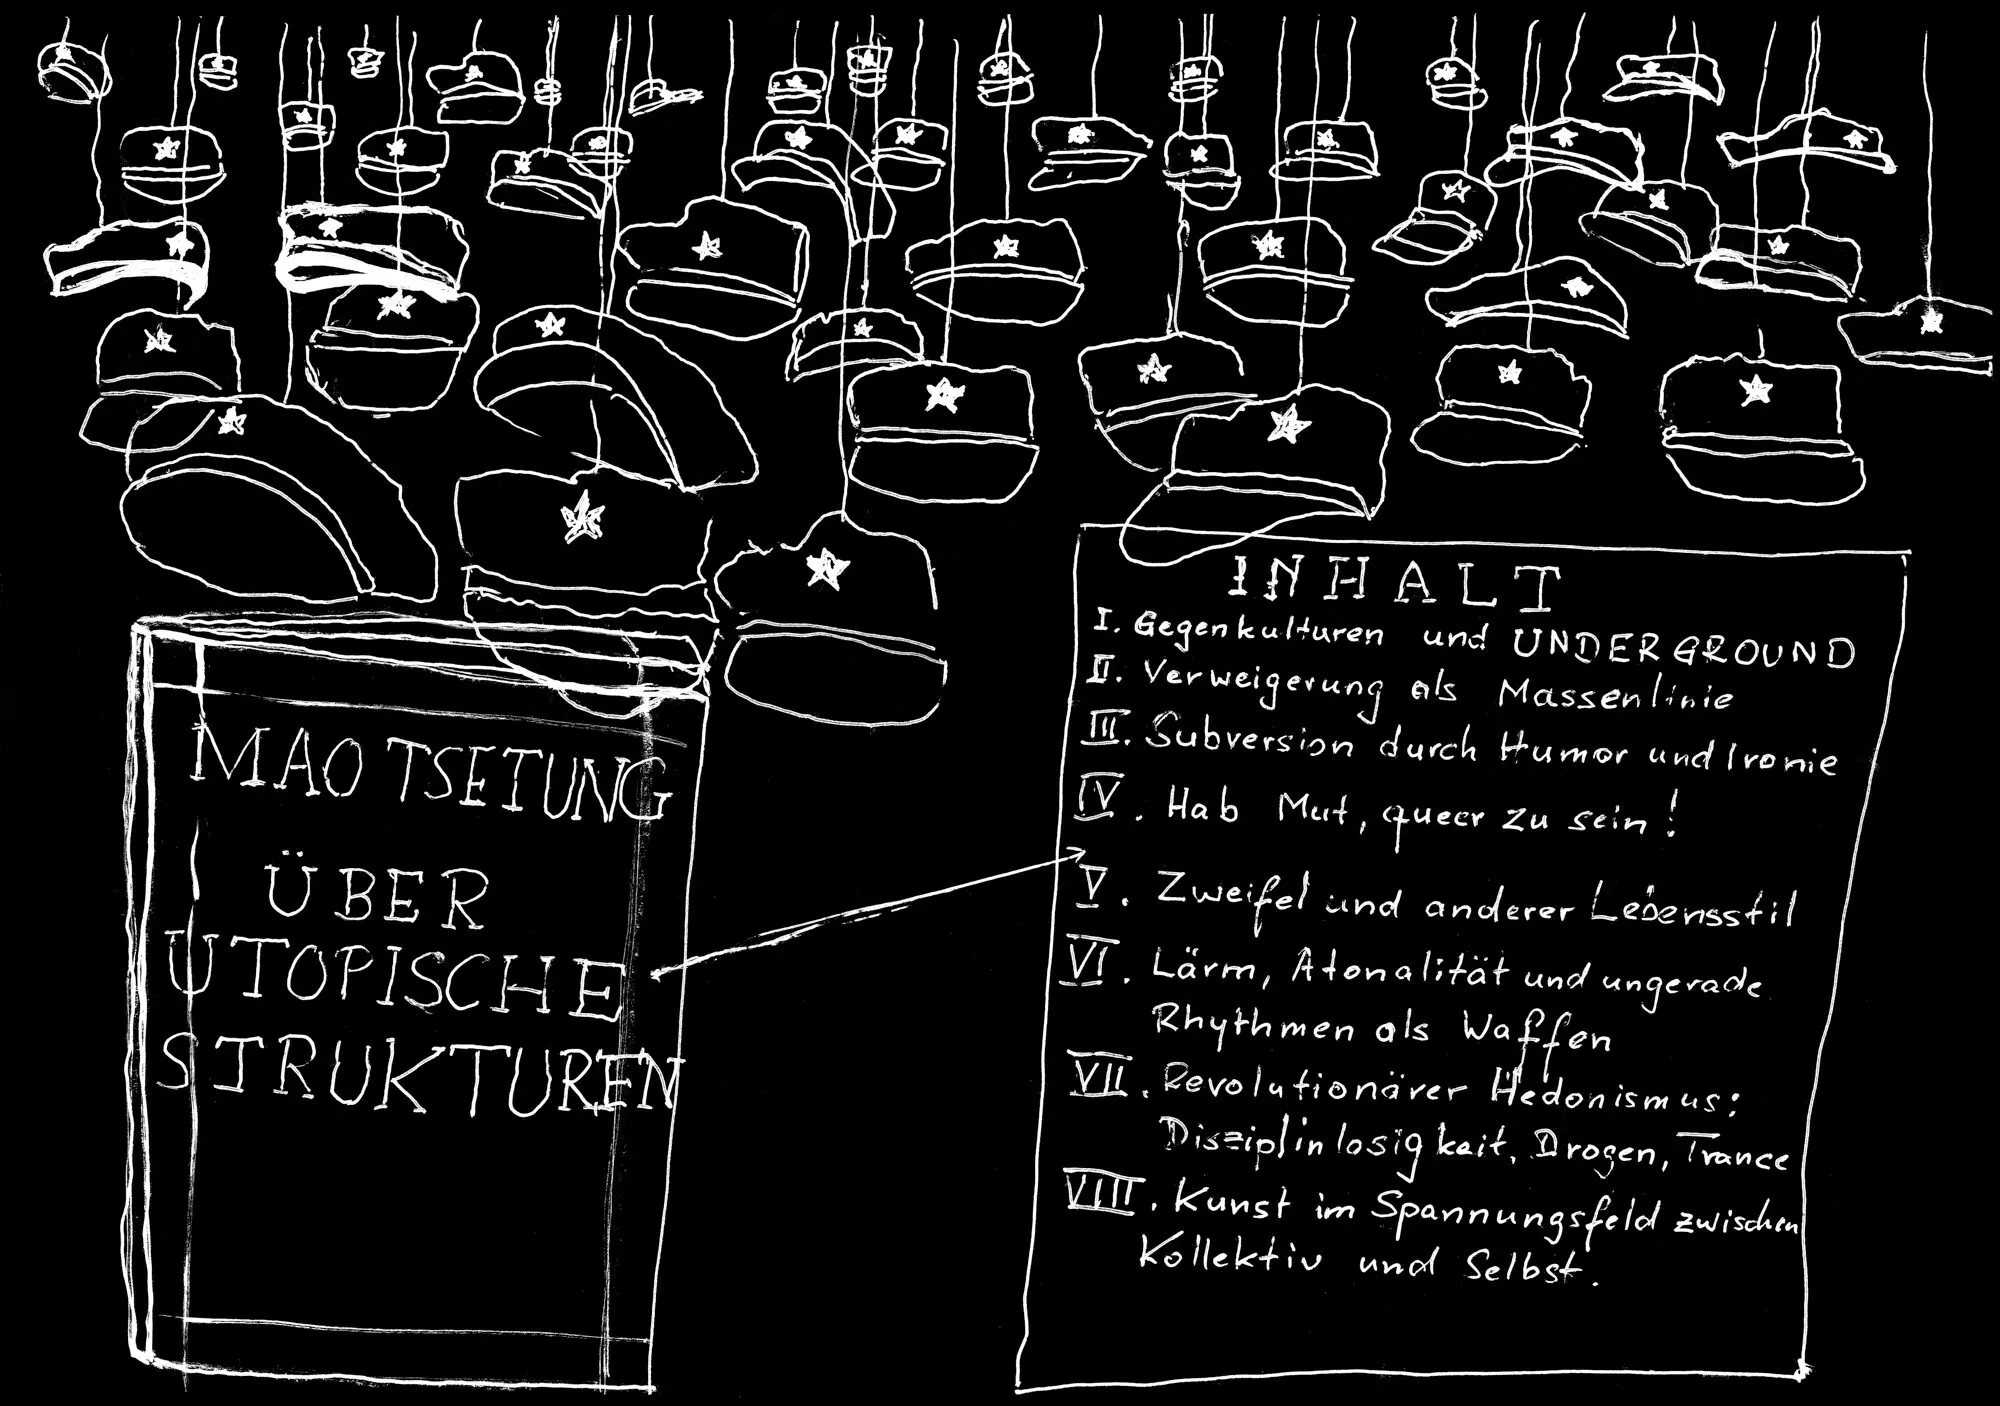 MAO TSETUNG
ÜBER
UTOPISCHE
STRUKTUREN
INHALT
I. Gegenkulturen und UNDERGROUND
II. Verweigerung als Massenlinie
III. Subversion durch Humor und Ironie
IV. Hab Mut, queer zu sein!
V. Zweifel und anderer Lebensstil
VI. Lärm, Atonalität und ungerade
Rhythmen als Waffen
VII. Revolutionärer Hedonismus:
Disziplinlosigkeit, Drogen, Trance
VIII. Kunst im Spannungsfeld zwischen
Kollektiv und Selbst.